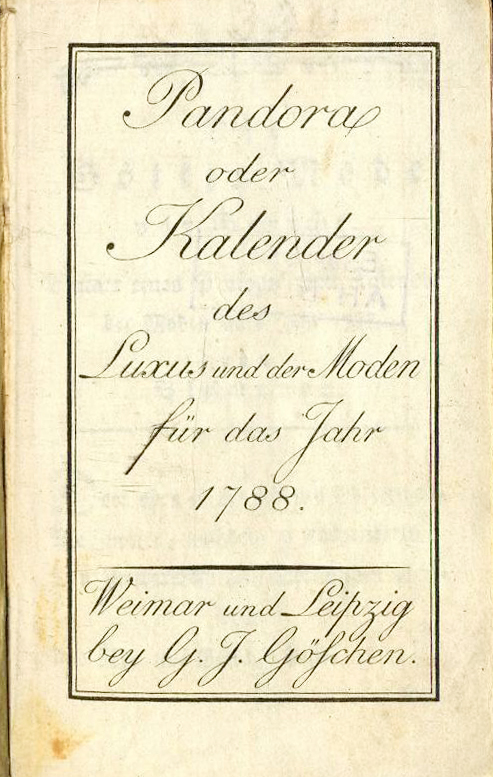 Pandora
oder
Kalender
des
Luxus und der Moden
für das Jahr
1788.
Weimar und Leipzig
bey G. J. Göſchen.